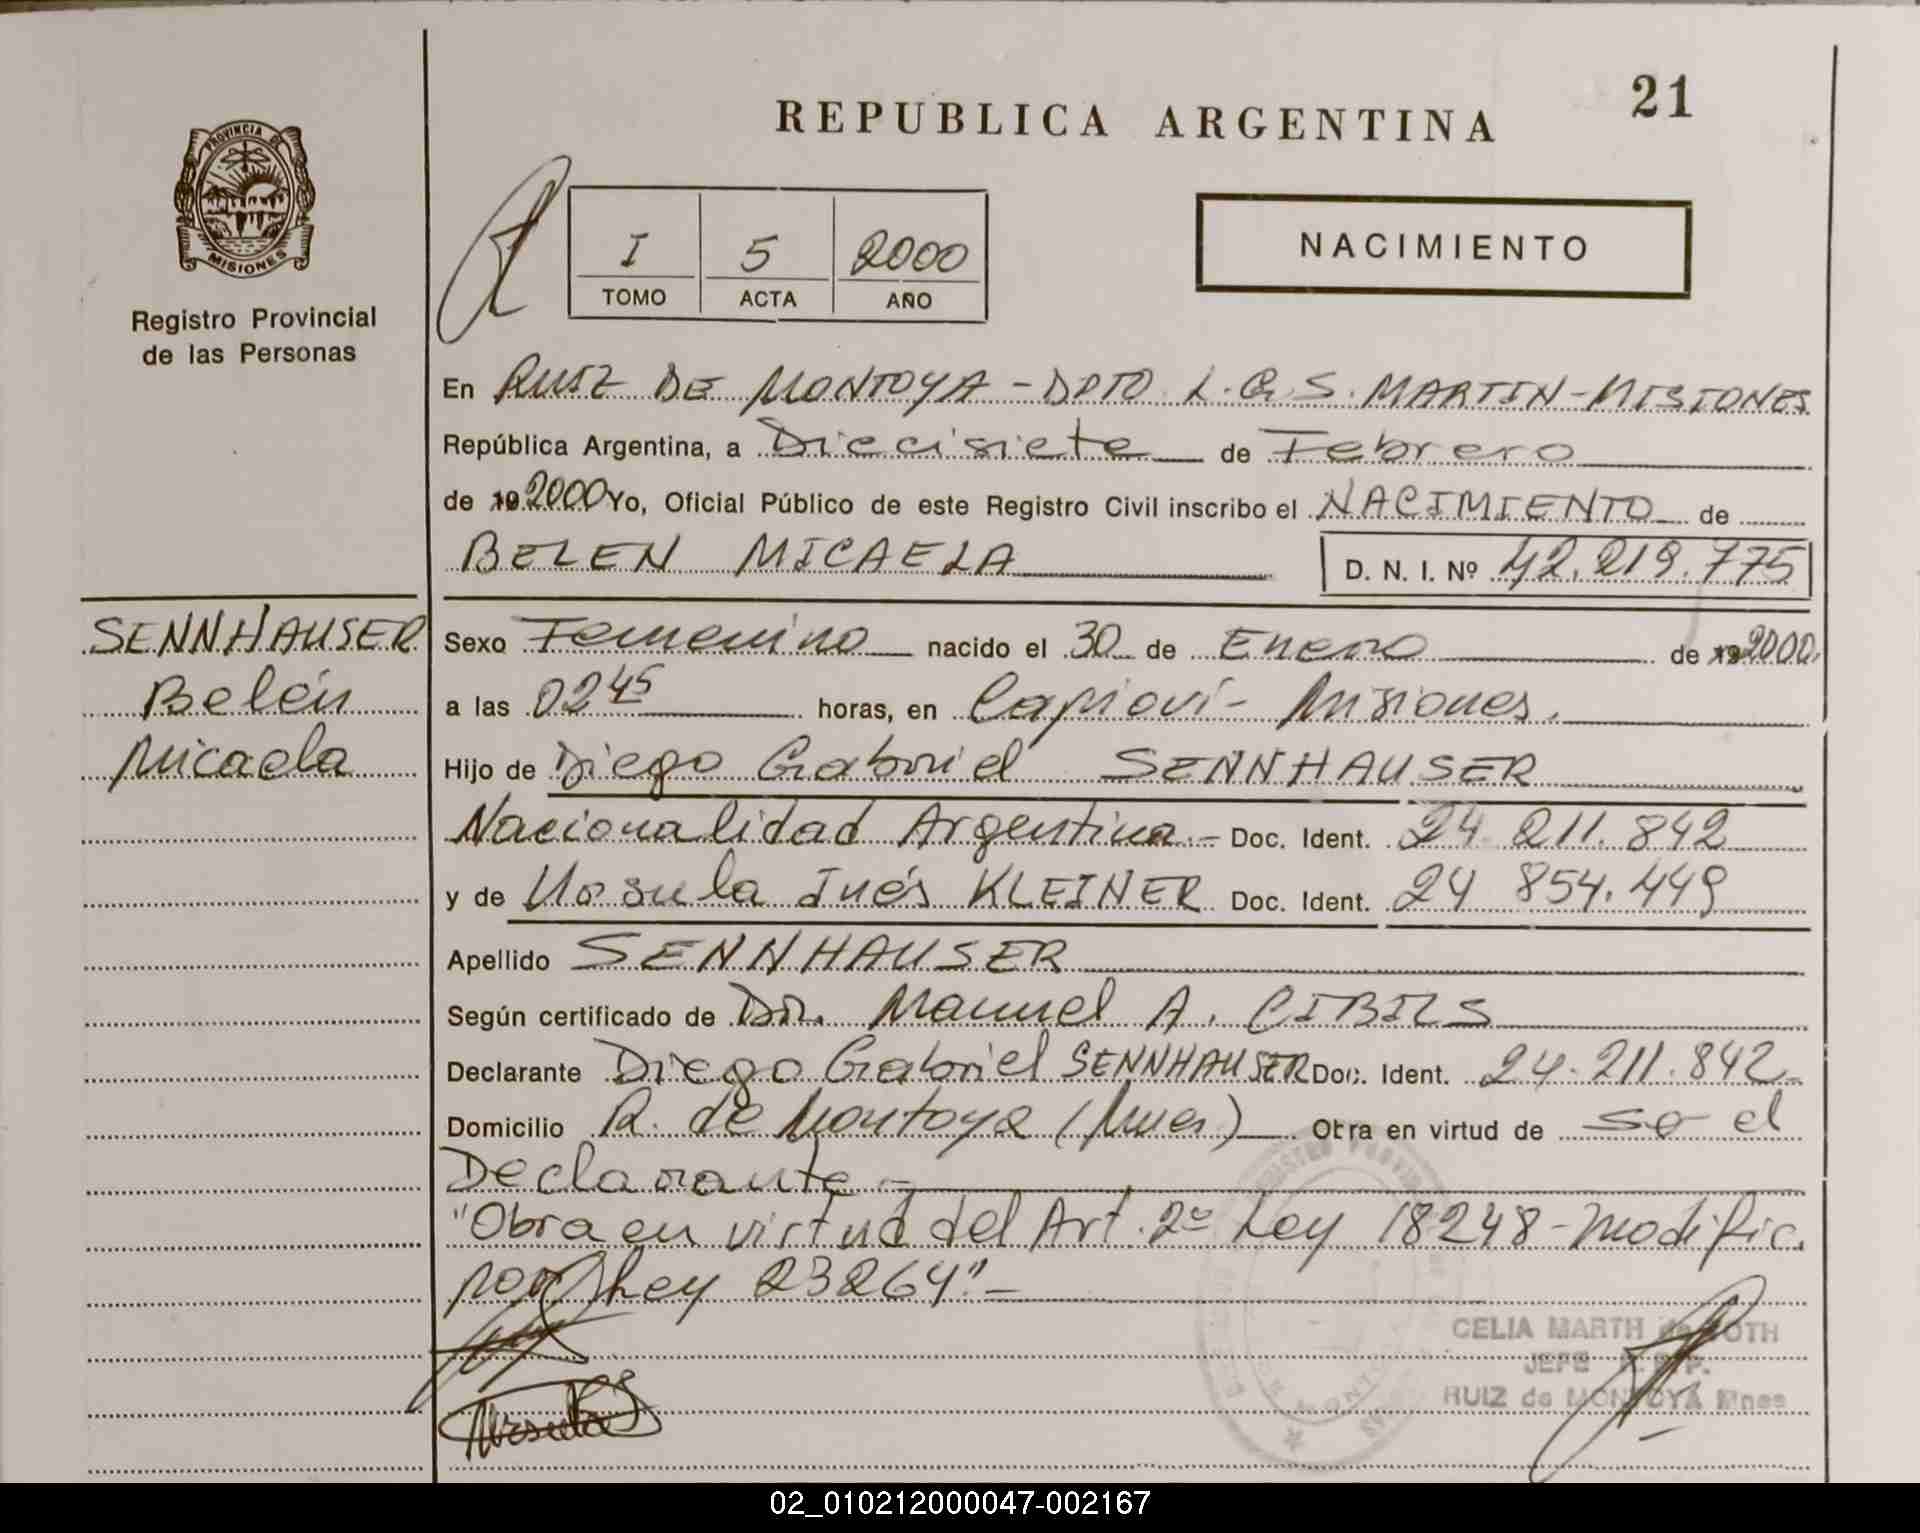 21
REPUBLICA ARGENTINA
PROVINCIA DE
MISIONES
Registro Provincial
de las Personas
I 5 2000
TOMO ACTA AÑO
NACIMIENTO
En RUIZ DE MONTOYA - DPTO. L.G.S. MARTIN - MISIONES
República Argentina, a Diecisiete de Febrero
de 19 2000 Yo, Oficial Público de este Registro Civil inscribo el NACIMIENTO de
BELEN MICAELA D. N. I. Nº 42.219.775
SENNHAUSER
Belén
Micaela
Sexo Femenino nacido el 30 de Enero de 19 2000.
a las 02 45 horas, en Capioví - Misiones.
Hijo de Diego Gabriel SENNHAUSER
Nacionalidad Argentina.- Doc. Ident. 24.211.842
y de Ursula Inés KLEINER Doc. Ident. 24 854.449
Apellido SENNHAUSER
Según certificado de Dr. Manuel A. CIBILS
Declarante Diego Gabriel SENNHAUSER Doc. Ident. 24.211.842
Domicilio R. de Montoya (Mnes) Obra en virtud de se el
Declarante.-
"Obra en virtud del Art. 2º Ley 18248 - Modific.
por Ley 23264".-
CELIA MARTH de ROTH
JEFE
RUIZ de MONTOYA Mnes
Ursula
02_010212000047-002167